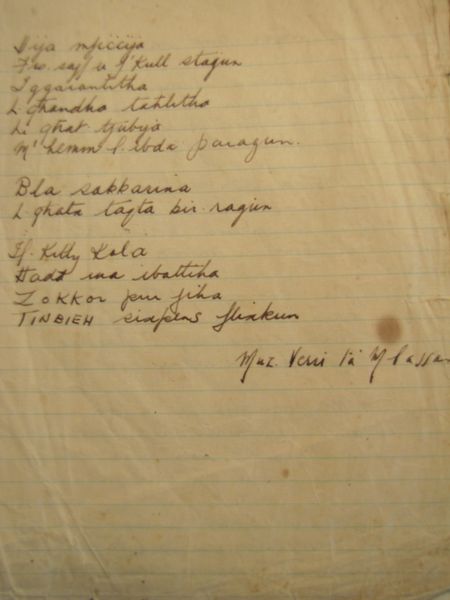 Hija mfiċċija
Fis-sajf u f'Kull staġun
Iggarantitha
L-għandha taħlitha
Li għat-tjubija
M'hemm l-ebda paragun.
Bla sakkarina
L-għata tagħta bir-raġun
Il-Kitty Kola
Ħadd ma ibattiha
Zokkor pur fiha
TINBIEH sixpens flixkun
Muz. Verri ta M